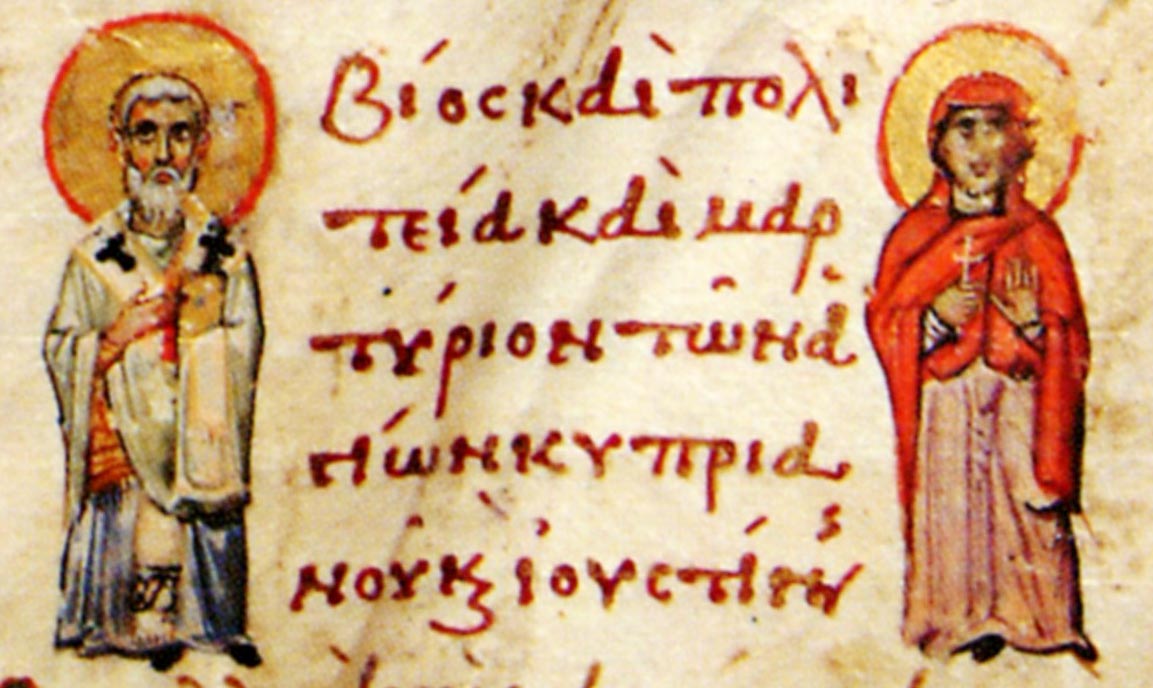 βίος καὶ πολι
τεία καὶ μαρ
τύριον τῶν ἁ
γίων κυπρια
νοῦ ϗ ἰουστίνης